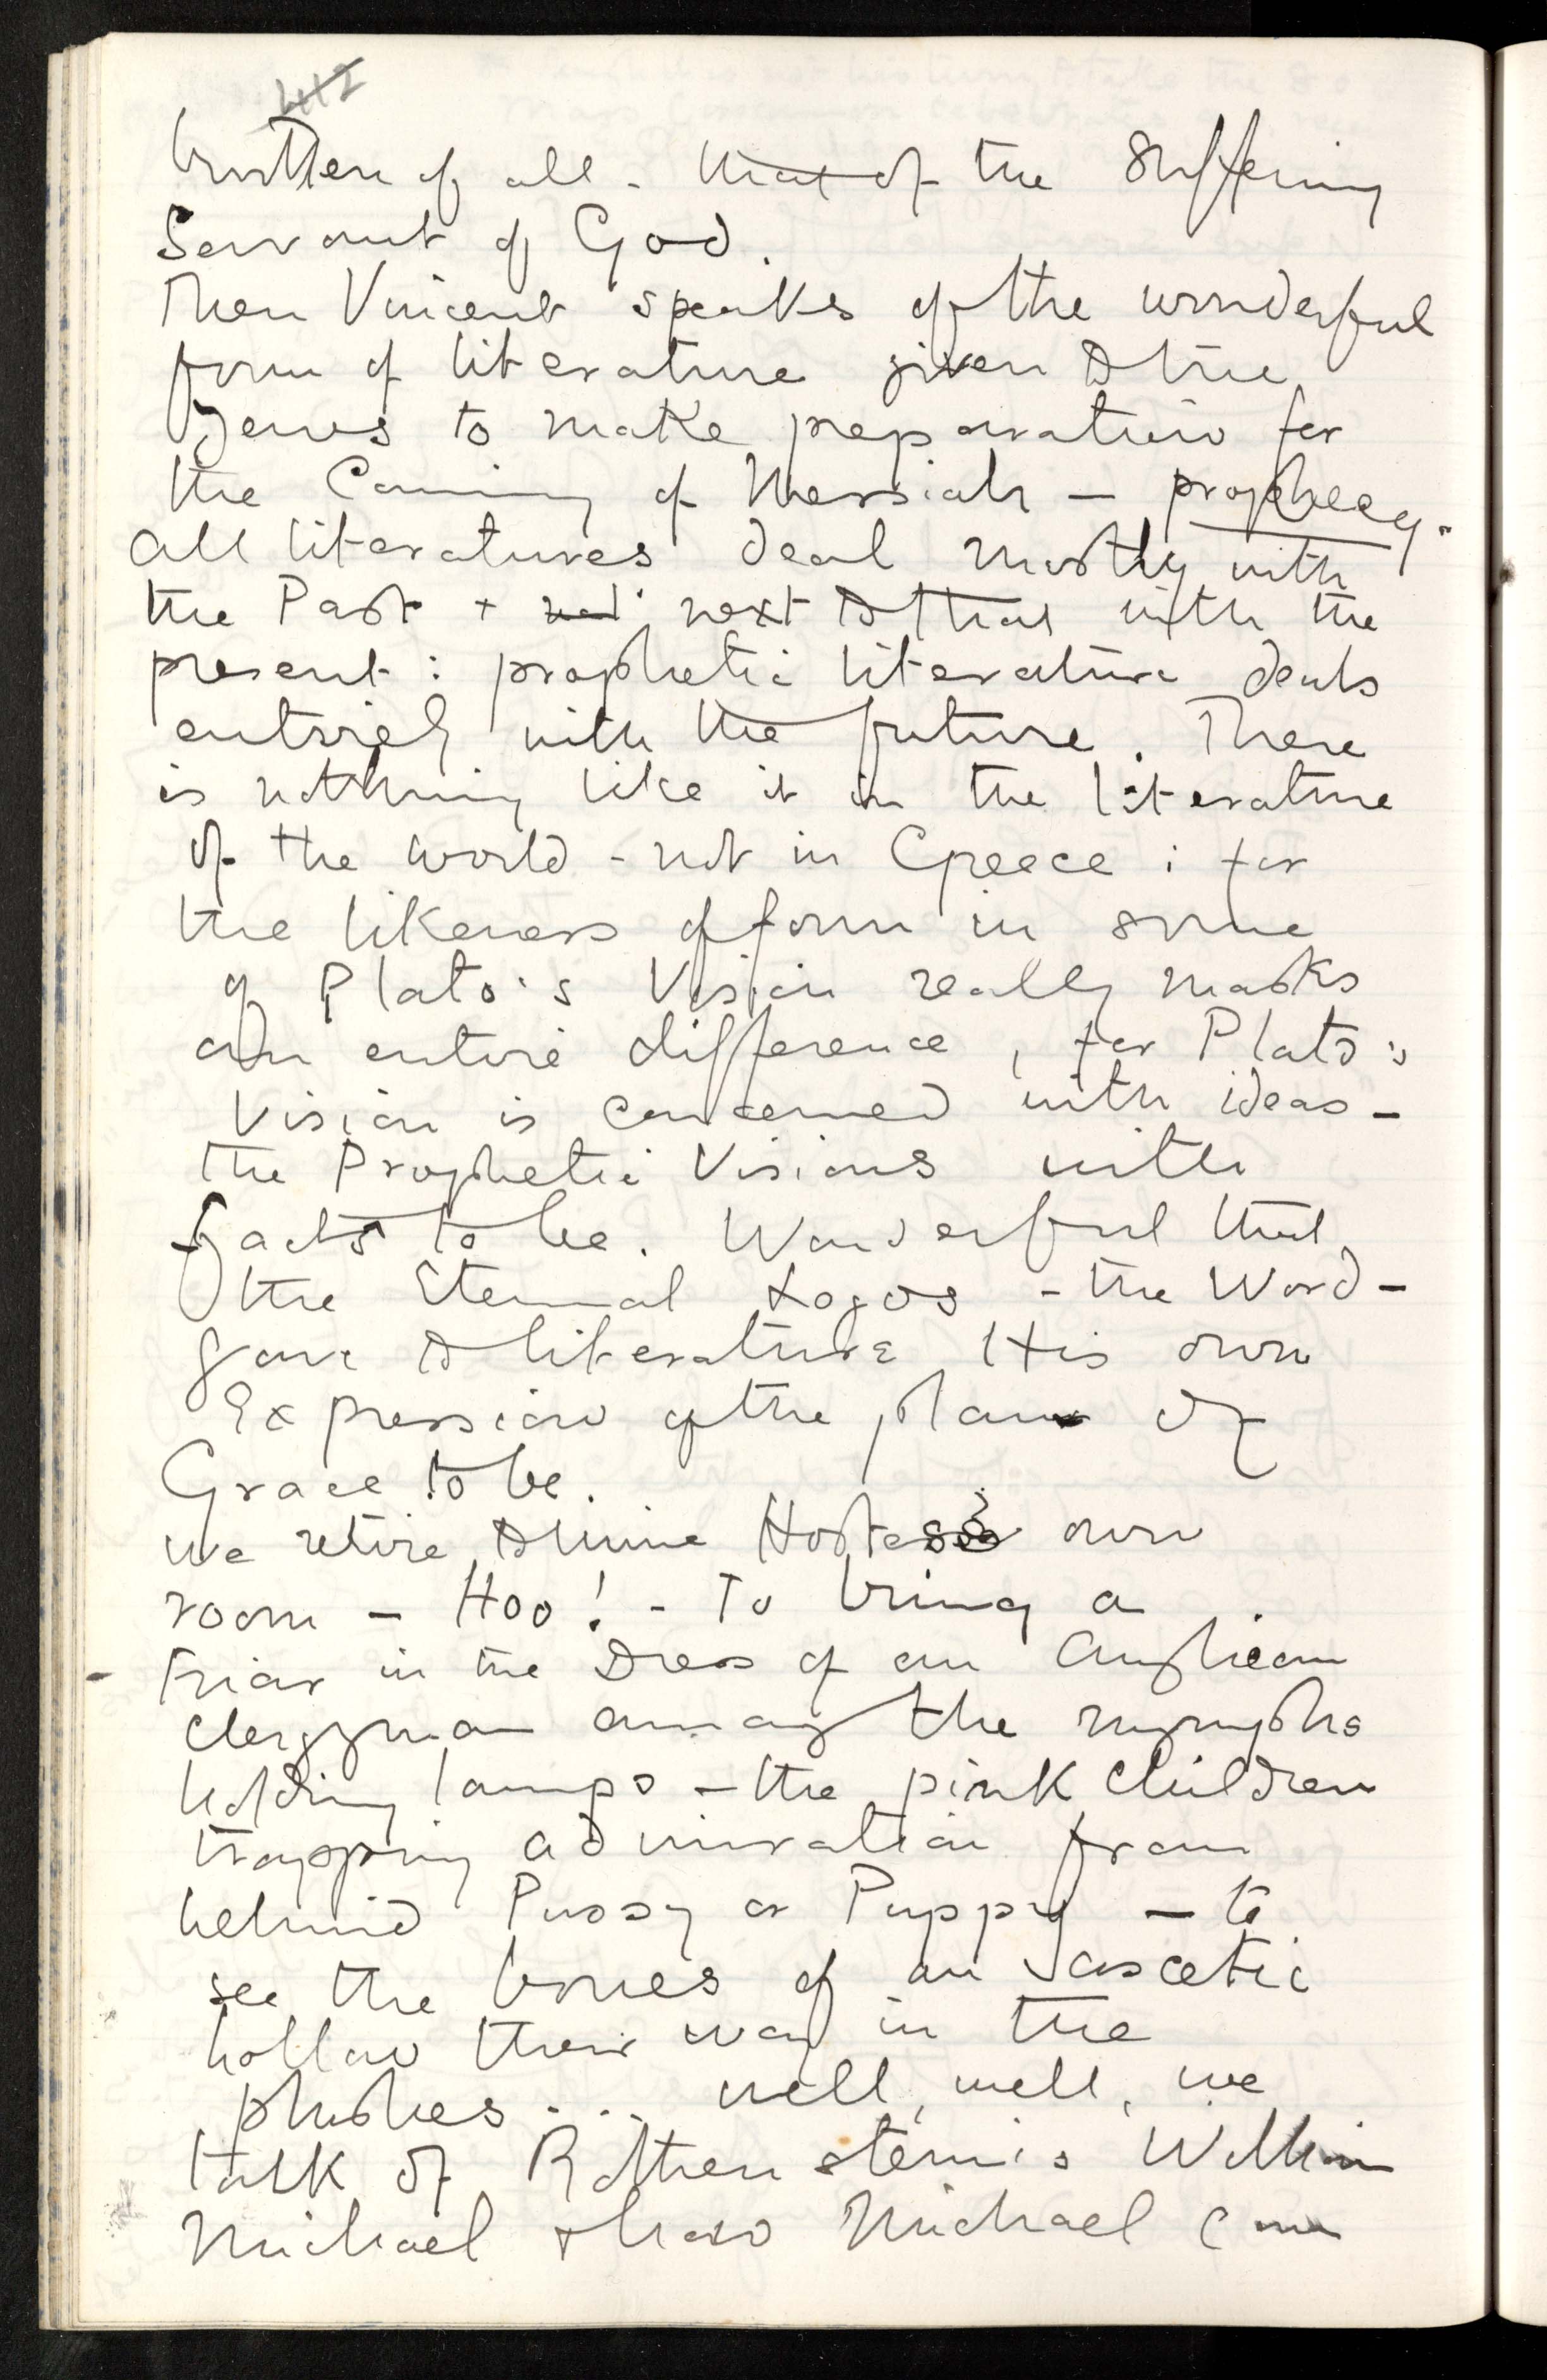 112
written of all - that of the Suffering
Servant of God.
Then Vincent speaks of the wonderful
form of literature given to the
Jews to make preparation for
the Coming of Messiah - prophecy.
All literatures deal mostly with
the Past + next to that with the
present : prophetic literature deals
entirely with the future. There
is nothing like it in the literature
of the world - not in Greece ; for
the likeness of form in some
of Plato's Vision really marks
an entire difference, for Plato's
Vision is concerned with ideas -
the Prophetic Visions with
facts to be. Wonderful that
the Eternal Logos - the Word -
gave to literature His own
Expression of the plan of
Grace to be.
We retire to mine Hostess' own
room - Hoo! - To bring a
Friar in the Dress of an Anglican
clergyman among the nymphs
holding lamps - the pink children
trapping admiration from
behind Pussy or Puppy - to
see the bones of an ascetic
hollow their way in the
plushes... well, well, we
talk of Rothenstein's William
Michael + how Michael